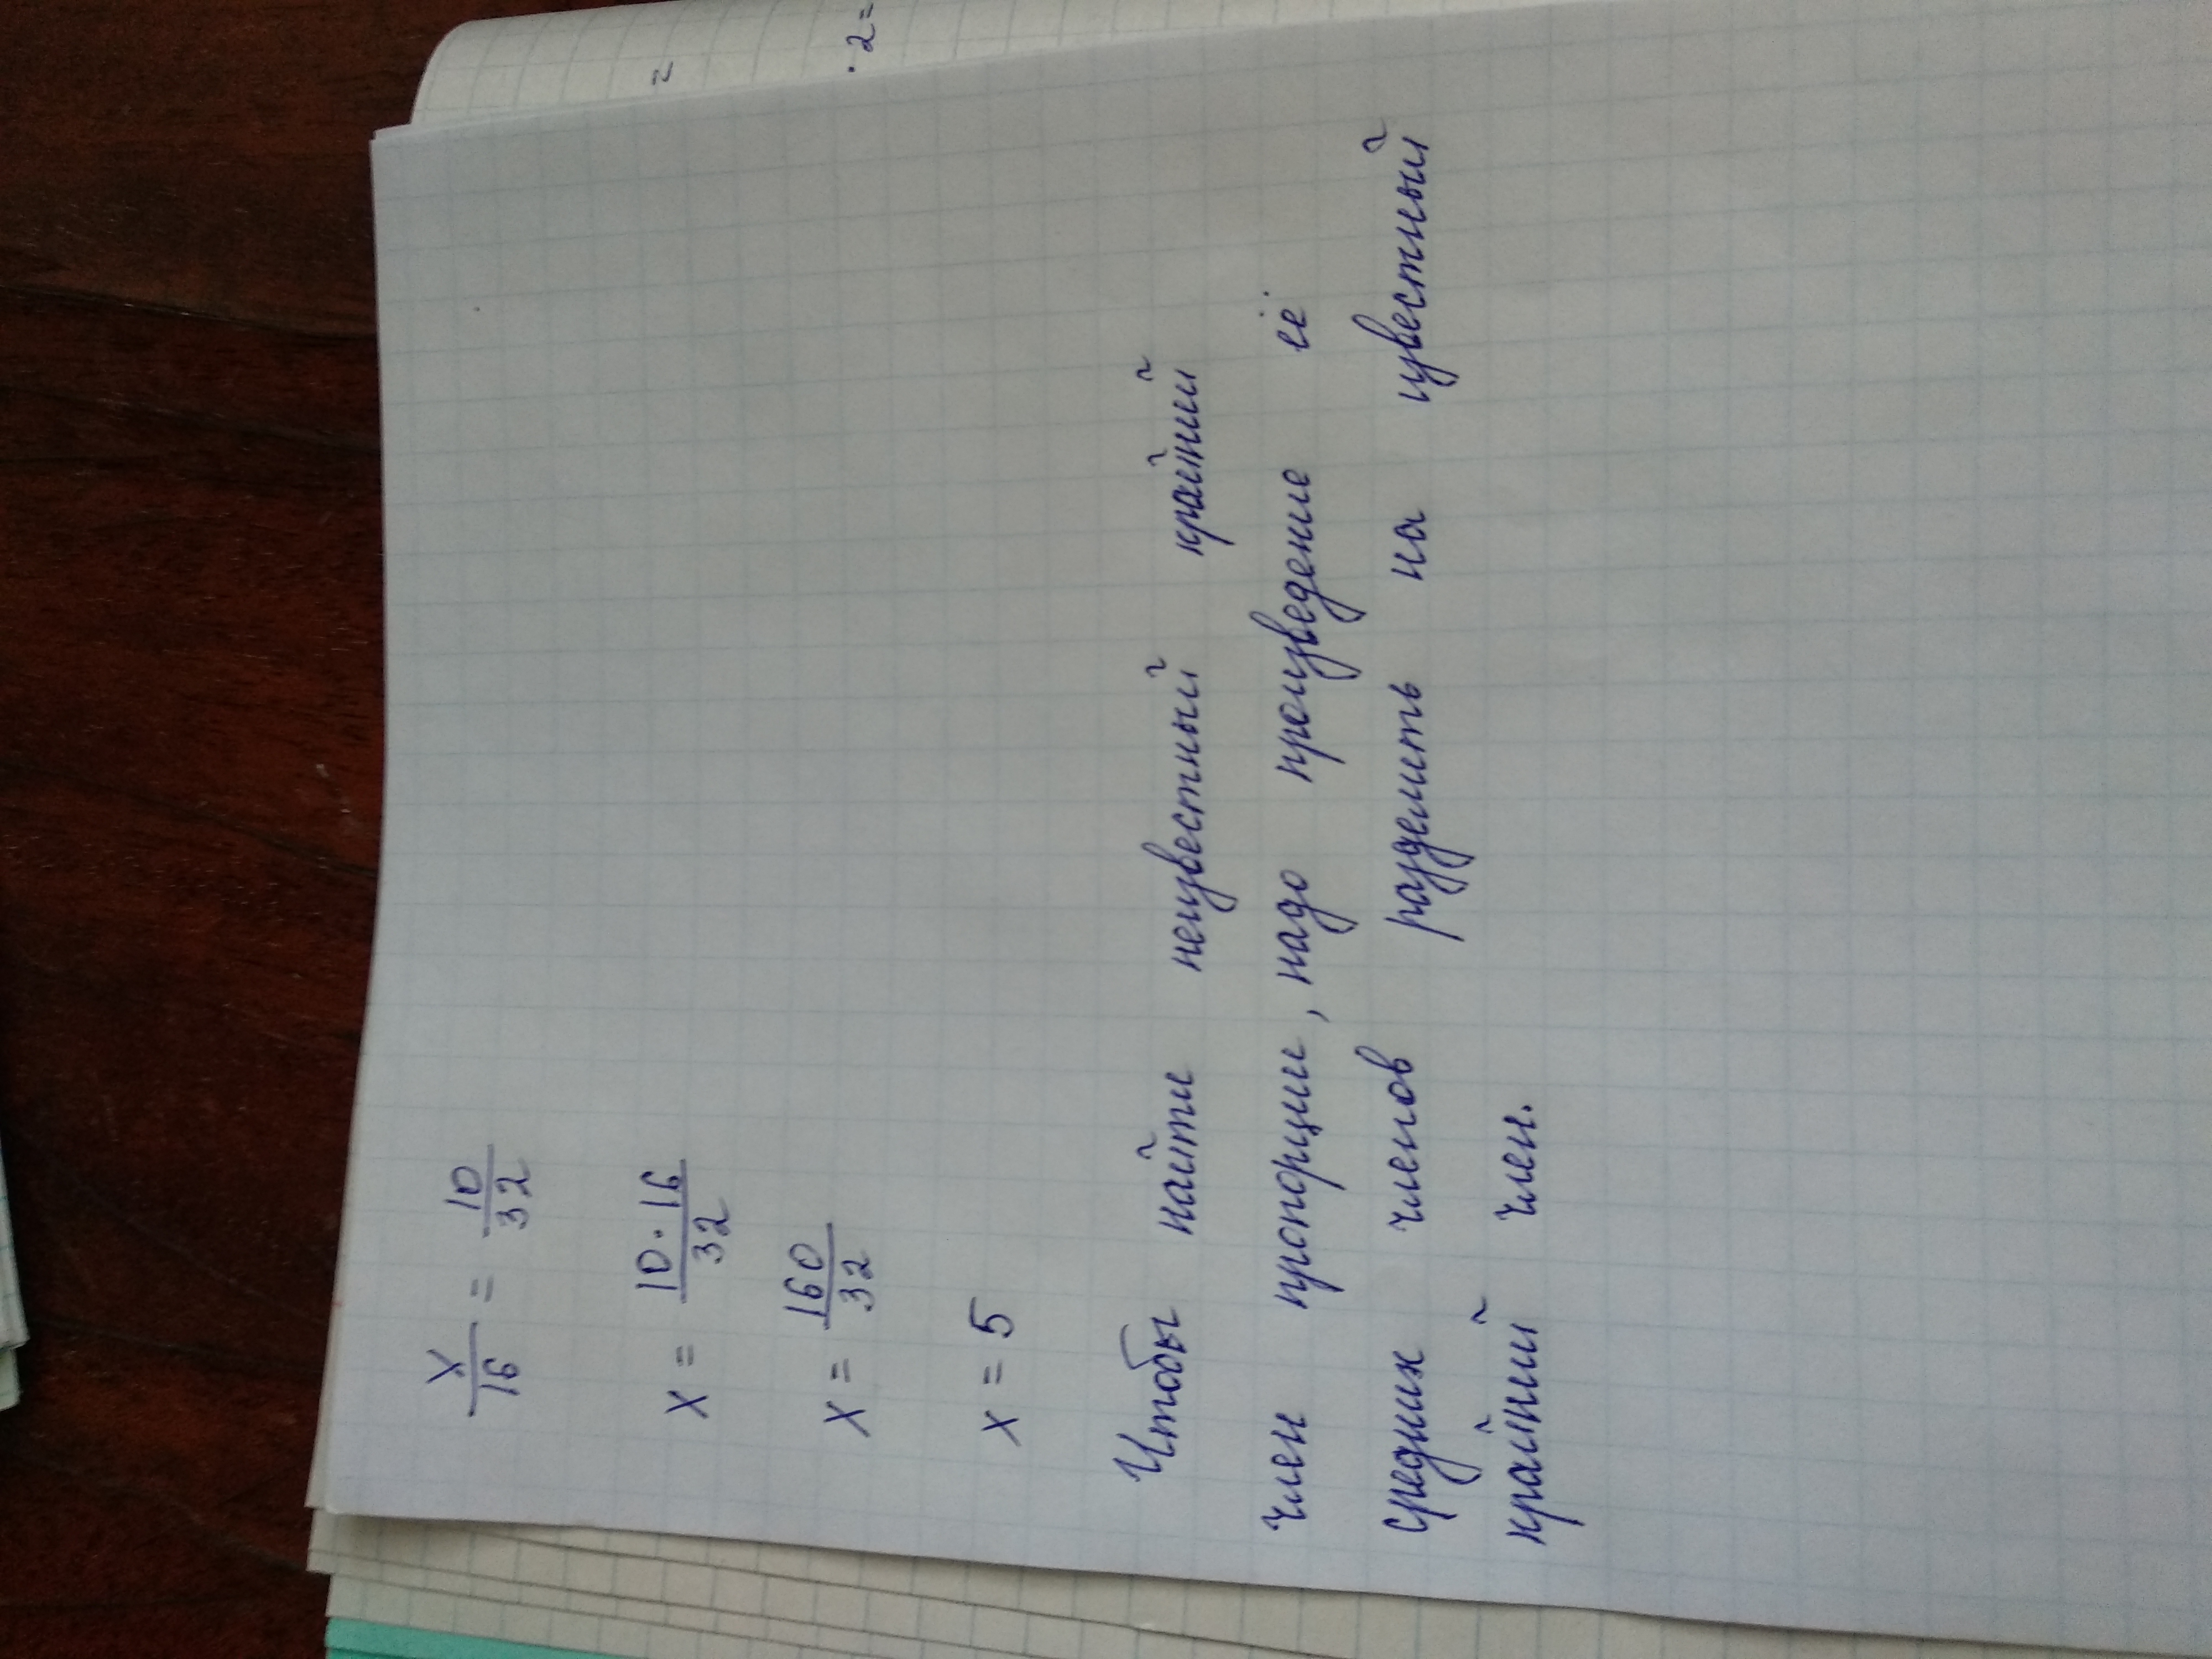 x/16 = 10/32
x = 10·16/32
x = 160/32
x = 5
Чтобы найти неизвестный крайний
член пропорции, надо произведение её
средних членов разделить на известный
крайний член.
=
· 2 =